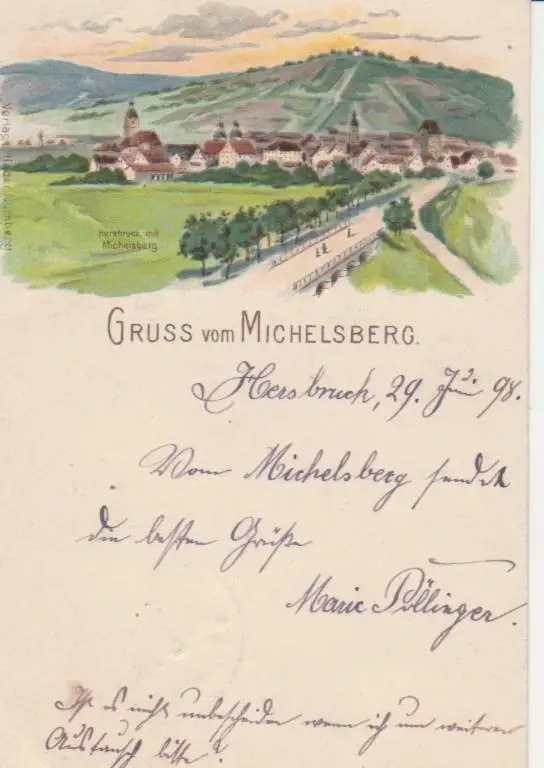 Hersbruck mit
Michelsberg
GRUSS vom MICHELSBERG.
Hersbruck, 29. 98.
Vom Michelsberg sendet
die besten Grüße
Marie Pöllinger.
Ist es nicht unbescheiden wenn ich um weiteren
Austausch bitte?